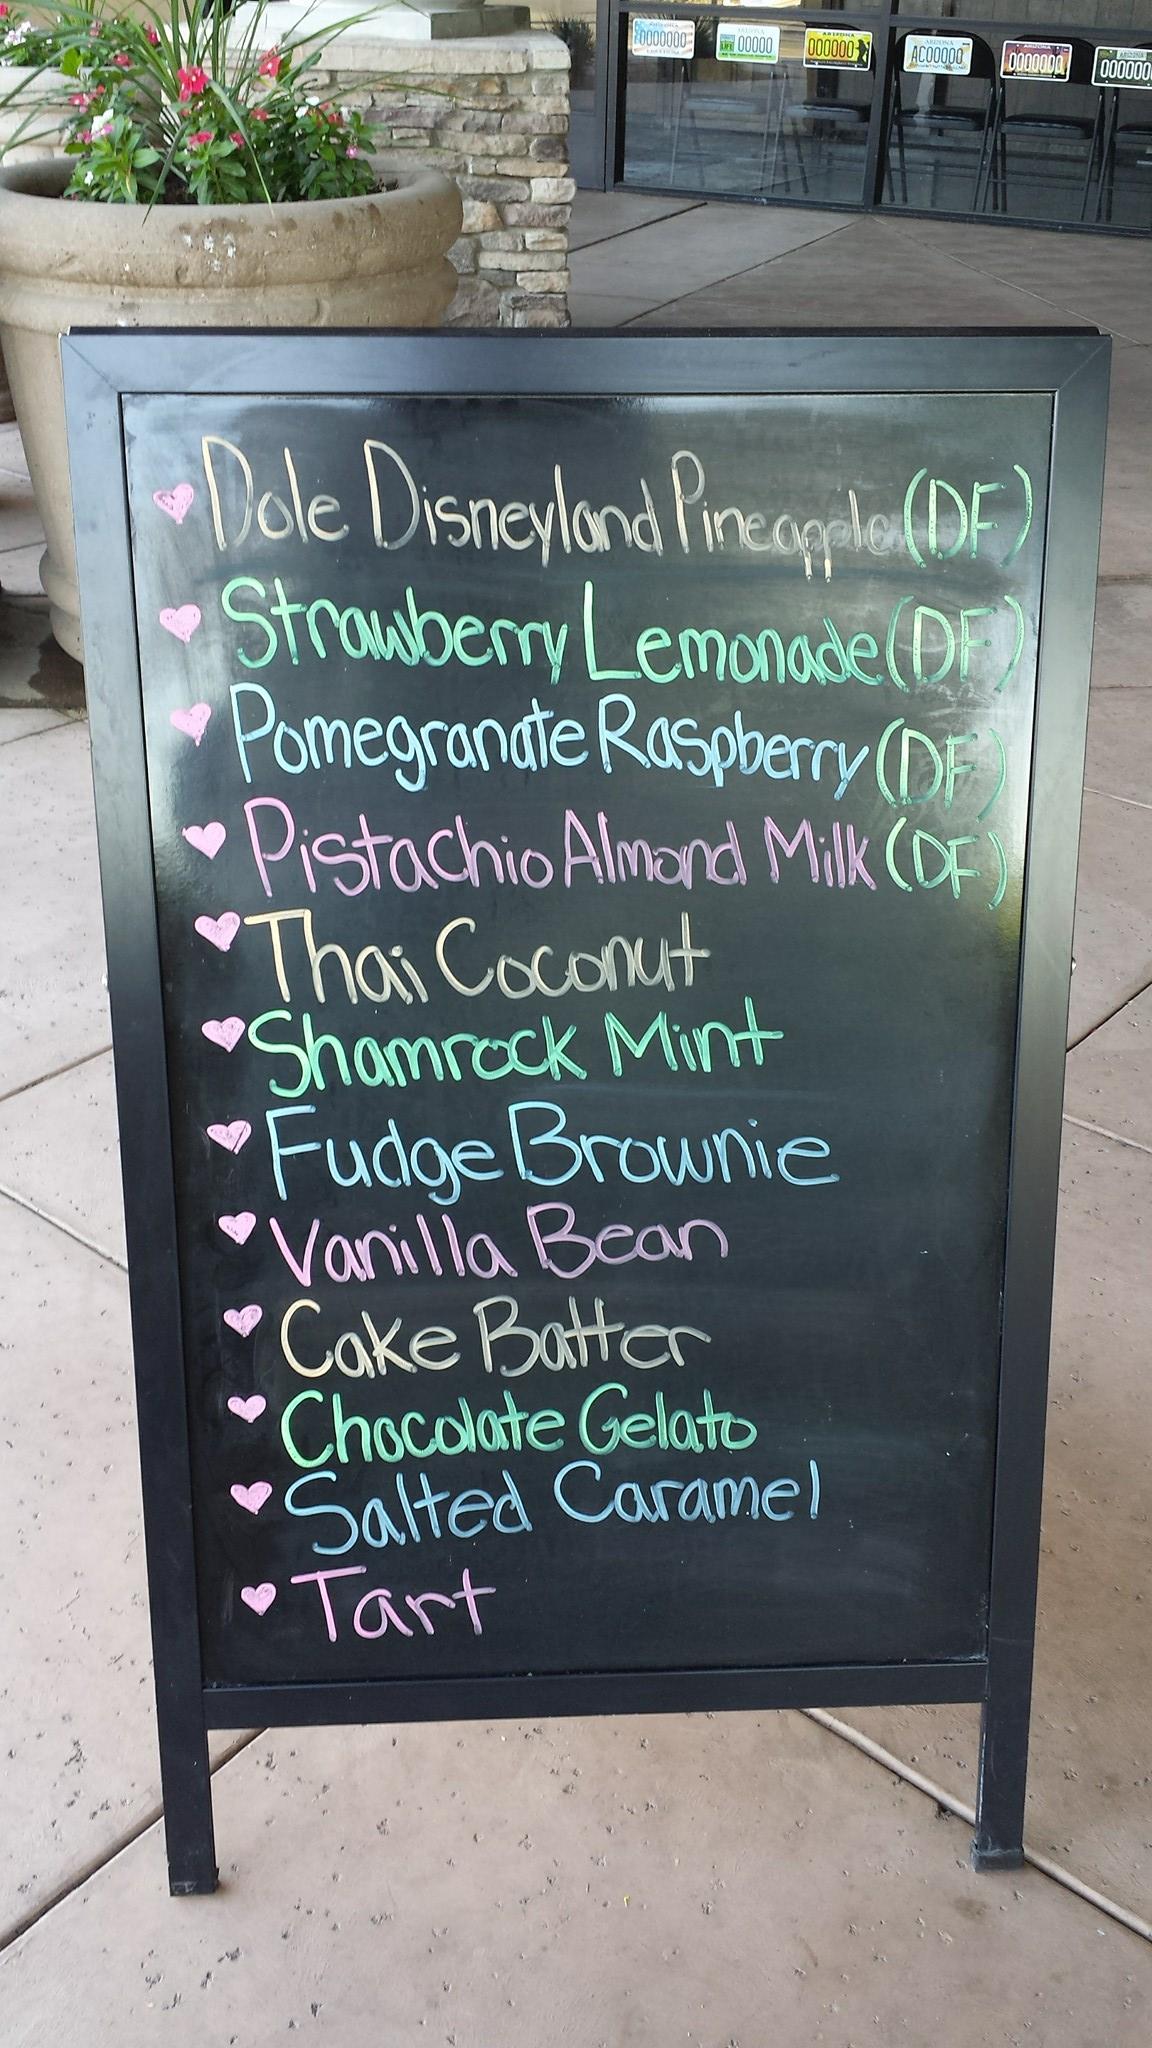 0000000
LIFE 00000
ARIZONA
000000
ARIZONA
AC00000
ARIZONA
0000000
000000
Dole Disneyland Pineapple (DF)
Strawberry Lemonade (DF)
Pomegranate Raspberry (DF)
Pistachio Almond Milk (DF)
Thai Coconut
Shamrock Mint
Fudge Brownie
Vanilla Bean
Cake Batter
Chocolate Gelato
Salted Caramel
Tart